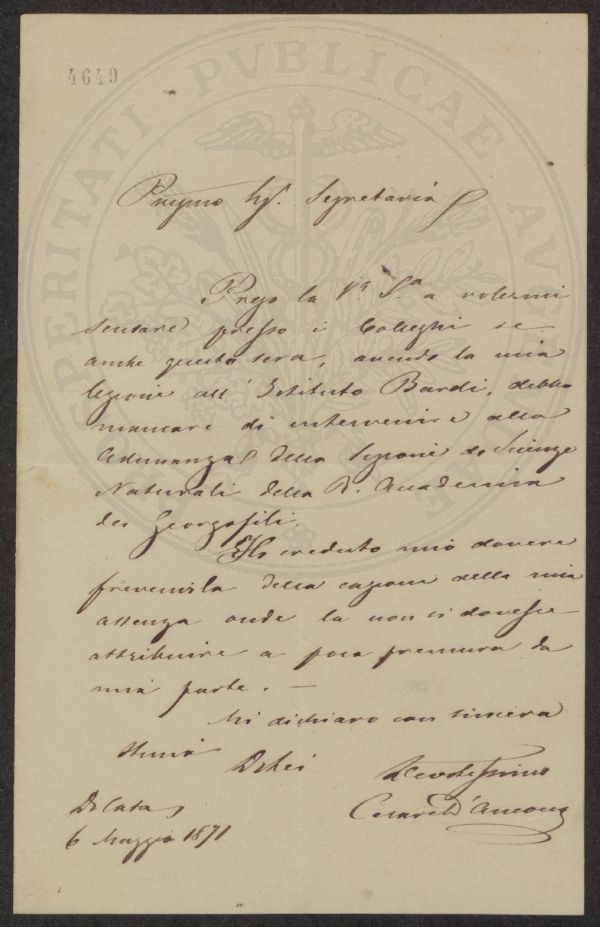 4649
PROSPERITATI PVBLICAE AVGENDAE
Pregmo Sig. Segretario
Prego la V.ª S.ª a volermi
scusare presso i Colleghi se
anche questa sera, avendo la mia
lezione all' Istituto Bardi, debba
mancare di intervenire alla
Adunanza della Sezione di Scienze
Naturali della R. Accademia
dei Georgofili.
Ho creduto mio dovere
prevenirla della cagione della mia
assenza onde la non si dovesse
attribuire a poca premura da
mia parte. —
Mi dichiaro con sincera
stima
Di Lei Devotissimo
Cesare D'Ancona
Di Casa
6 Maggio 1871